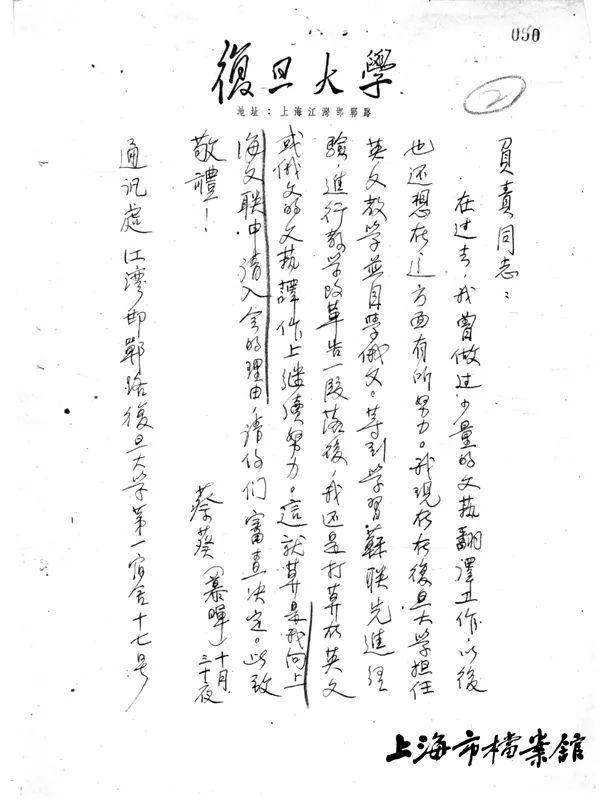 050
2
復旦大學
地址：上海江灣邯鄲路
負責同志：
在过去，我曾做过少量的文艺翻譯工作，以後
也还想在这方面有所努力。我現在在復旦大学担任
英文教学並自學俄文。等到学習蘇联先進經
驗，進行教学改革告一段落後，我还是打算在英文
或俄文的文艺譯作上继續努力。這就算是我向上
海文联申請入会的理由，請你们審查决定。此致
敬禮！
蔡葵（慕暉）十月
三十夜
通訊處 江灣邯鄲路復旦大学第一宿舍十七号
上海市檔案館